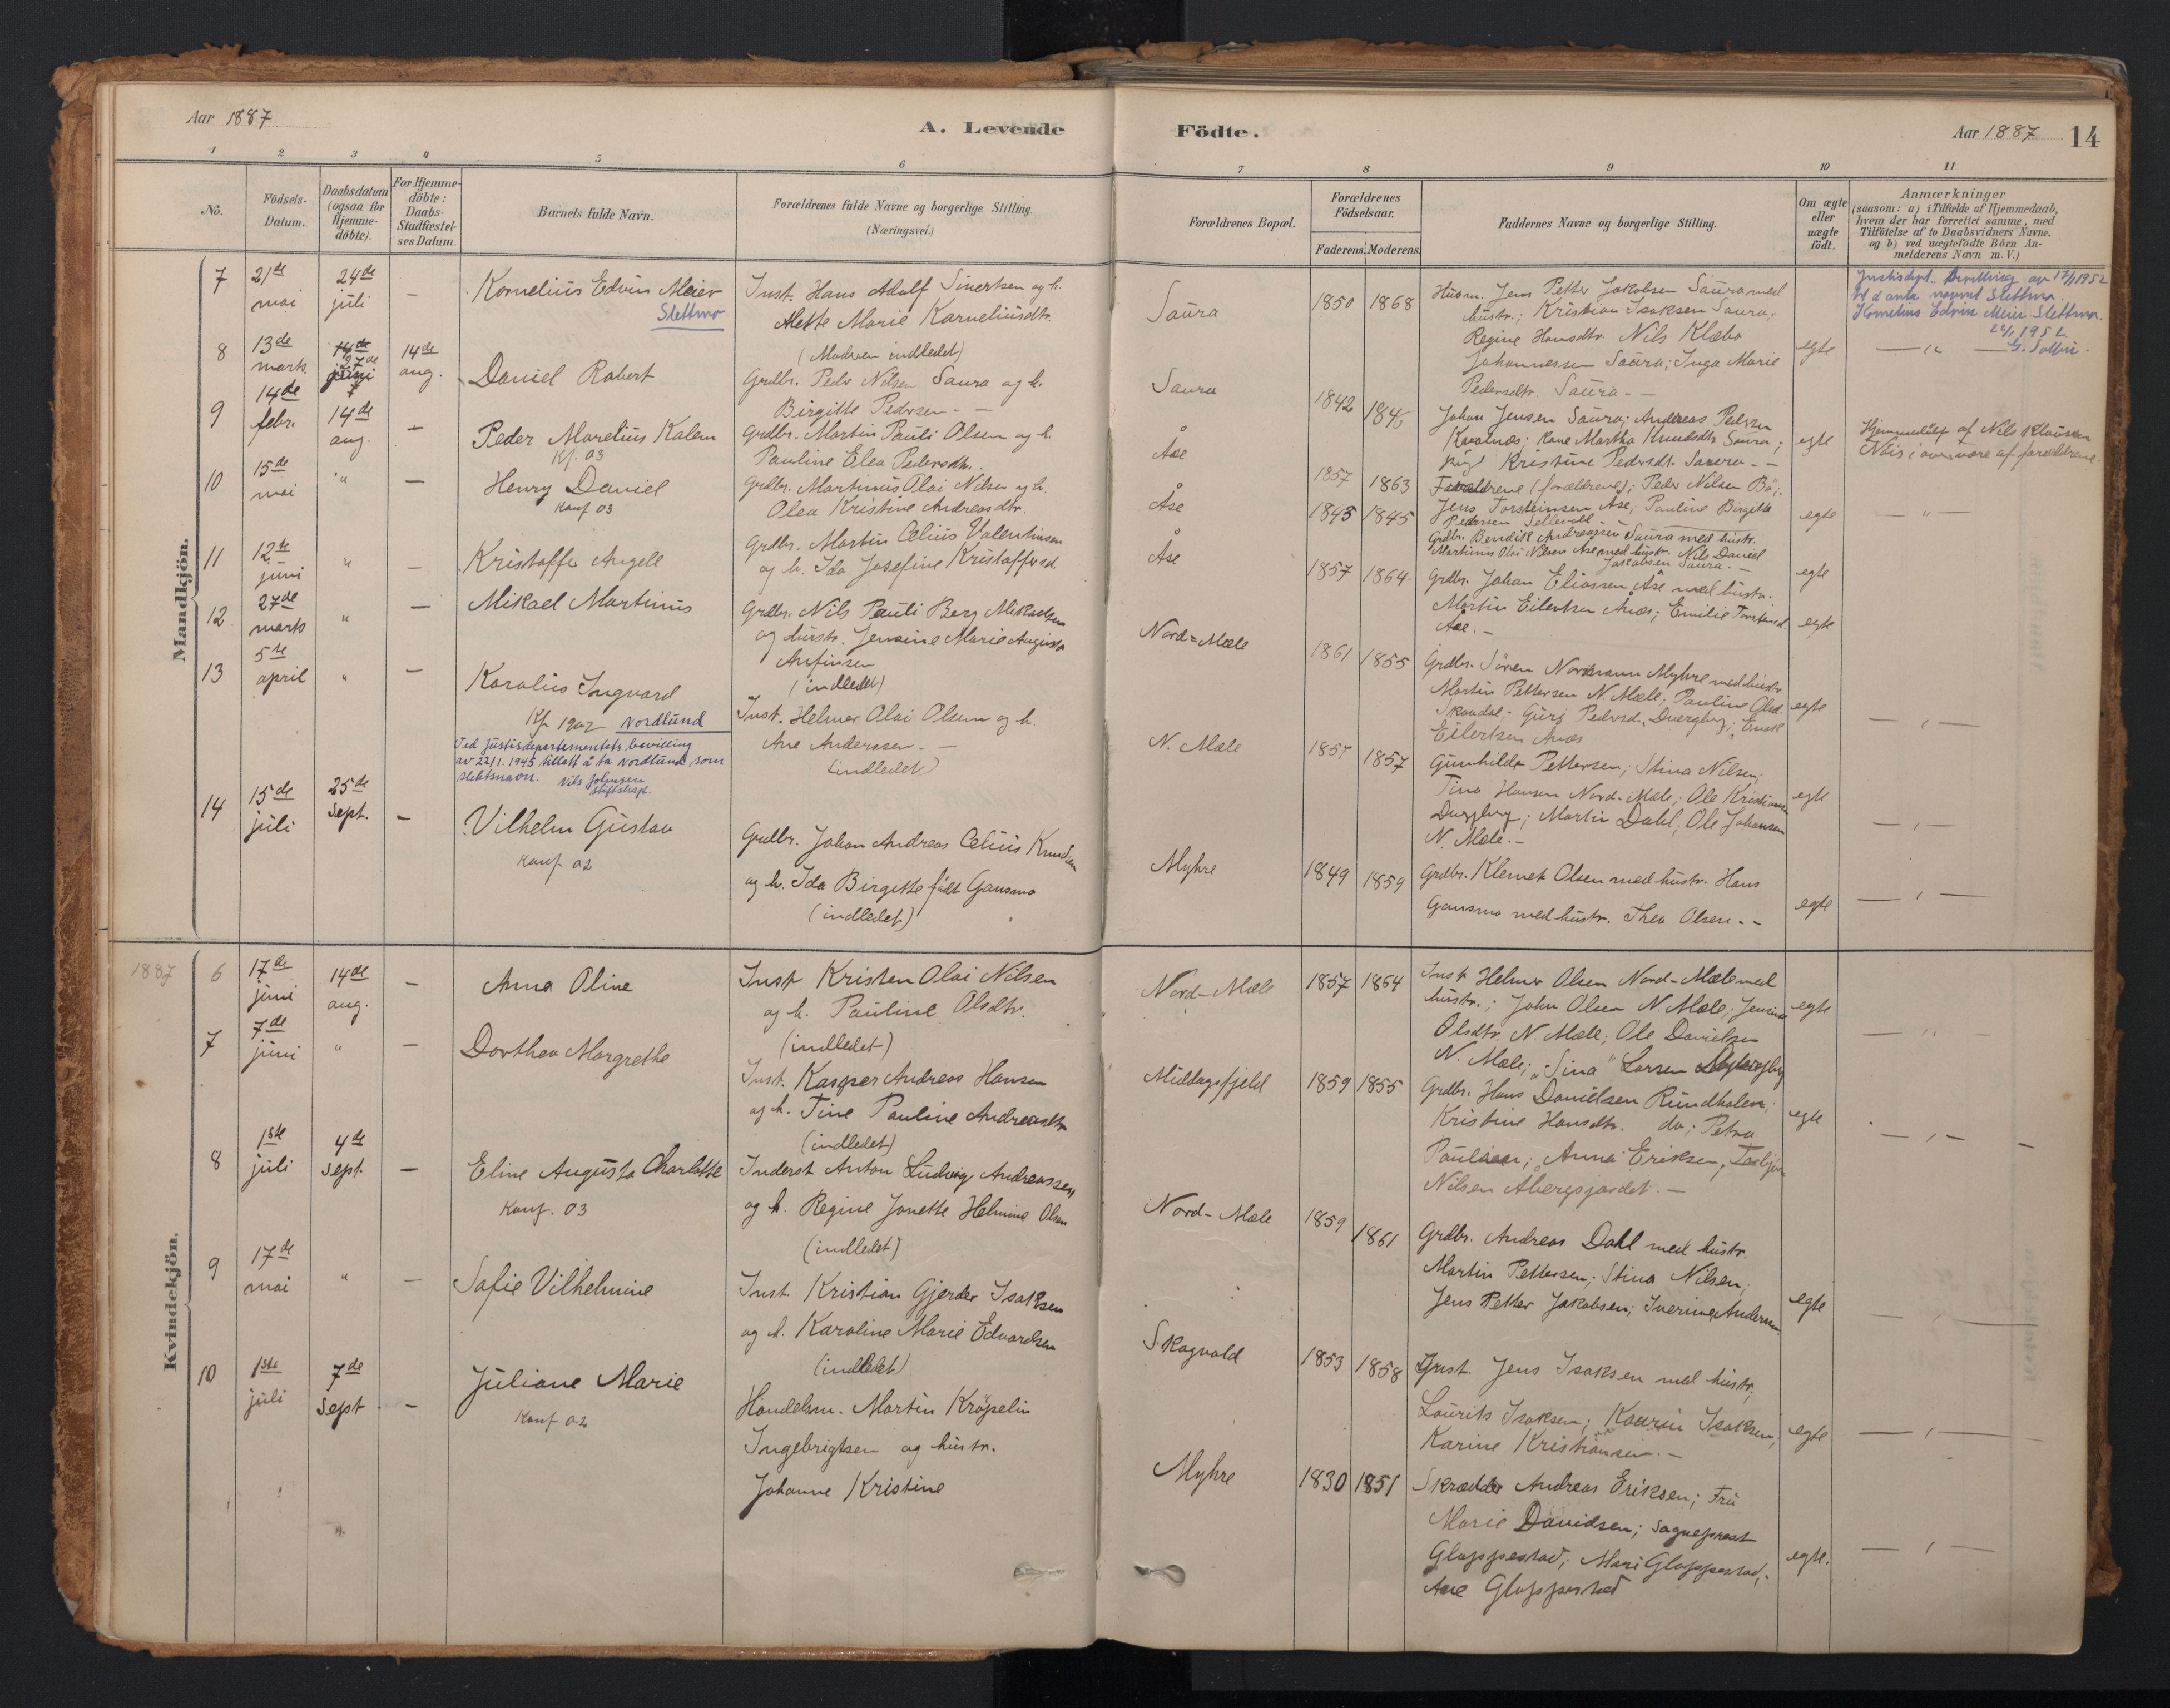 Aar 1887
A. Levende
Födte.
Aar 1887
14
1 2 3 4 5 6 7 8 9 10 11
No.
Födsels-Datum.
Daabsdatum (ogsaa for Hjemme-döbte).
For Hjemme-döbte: Daabs-Stadfæstel-ses Datum.
Barnets fulde Navn.
Forældrenes fulde Navne og borgerlige Stilling.
(Næringsvei.)
Forældrenes Bopæl.
Forældrenes Födselsaar.
Faderens. Moderens.
Faddernes Navne og borgerlige Stilling.
Om ægte eller uægte födt.
Anmærkninger
(saasom: a) i Tilfælde af Hjemmedaab,
hvem der har forrettet samme, med
Tilföielse af to Daabsvidners Navne,
og b) ved uægtefödte Börn An-
melderens Navn m. V.)
Mandkjön.
7 21de mai 24de juli — Kornelius Edvin Meier
Slettmo
Inst. Hans Adolf Sivertsen og h.
Alette Marie Karneliusdtr.
(Moderen indledet)
Saura 1850 1868
Husm. Jens Petter Jakobsen Saura med
hustr.; Kristian Isaksen Saura,
Regine Hansdtr. Nils Klæbo
Johannessen Saura; Inga Marie
Pedersdtr. Saura. —
egte
Justisdept. bevilling av 17/1 1952
til å anta navnet Slettmo.
Kornelius Edvin Meier Slettmo.
8 13de marts 14de aug. Daniel Robert
Grdbr. Peder Nilsen Saura og h.
Birgitte Pedersen. —
Saura 1842 1845
Johan Jensen Saura; Andreas Pedersen
Kvalnæs; Kone Martha Knudsdtr. Saura;
Pige Kristine Pedersdtr. Saura. —
egte
Hjemmedöbt af Nils Klausen
9 14de febr. 14de aug. — Peder Marelius Kalem
Kf. 03
Grdbr. Martin Pauli Olsen og h.
Pauline Elea Pedersdtr.
Åse 1857 1863
Forældrene (forældrene); Peder Nilsen Bö;
Jens Torsteinsen Åse; Pauline Birgitte
Pedersen
egte — " —
10 15de mai " — Henry Daniel
Konf 03
Grdbr. Martinus Olai Nilsen og h.
Olea Kristine Andreasdtr.
Åse 1845 1845
Grdbr. Bendik Andreassen Saura med hustr.
Martinus Olai Nilsen Åse med hustr. Nils Daniel
Jakobsen Saura. —
egte
11 12te juni " — Kristoffer Angell
Grdbr. Martin Celius Valentinsen
og h. Ida Josefine Kristoffersd.
Åse 1857 1864
Grdbr. Johan Eliassen Åse med hustr.
Martin Eilertsen Anæs; Emilie Torstensd.
Åse. —
egte
12. 27de marts " — Mikael Martinus
Grdbr. Nils Pauli Berg Mikalsen
og hustr. Jensine Marie Augusta
Arnfinsen
(indledet)
Nord-Mæle 1861 1855
Grdbr. Sören Nordmann Myhre med hustr.
Martin Pettersen N. Mæle, Pauline Olsd.
Skaadal; Guri Pedersd. Dvergberg;
Eilertsen Anæs
egte — " —
13 5te april " — Karolius Ingvard
Kf 1902 Nordlund
Ved justisdepartementets bevilling
av 22/1. 1945 tillatt å ta Nordlund som
slektsnavn. Nils Johnsen
stiftskapl.
Inst. Helmer Olai Olsen og h.
Ane Anderssen. —
(indledet)
N. Mæle 1857 1857
Gunhilda Pettersen; Stina Nilsen;
Tina Hansen Nord-Mæle; Ole Kristiansen
Dvergberg; Martin Dahl; Ole Johansen
N. Mæle. —
egte — " —
14 15de juli 25de Sept. — Vilhelm Gustav
Konf 02
Grdbr. Johan Andreas Celius Knudsen
og h. Ida Birgitte födt Gausmo
(indledet)
Myhre 1849 1859
Grdbr. Klemet Olsen med hustr. Hans
Gausmo med hustr. Thea Olsen. —
egte — " —
Kvindekjön.
1887 6 17de juni 14de aug. — Anna Oline
Inst Kristen Olai Nilsen
og h. Pauline Olsdtr.
(indledet)
Nord-Mæle 1857 1864
Inst. Helmer Olsen Nord-Mæle med
hustr.; John Olsen N. Mæle; Jensine
Olsdtr. N. Mæle; Ole Davidsen
N. Mæle; "Sina" Larsen
egte — " —
7 7de juni " — Dorthea Margrethe
Inst. Kasper Andreas Hansen
og h. Tine Pauline Andreasdtr
(indledet)
Middagsfjeld 1859 1855
Grdbr. Hans Danielsen Rundholen;
Kristine Hansdtr. do; Petra
Paulsen; Anna Eriksen;
Nilsen Åbergsjordet. —
egte — " —
8 1ste juli 4de Sept. — Eline Augusta Charlotte
Konf. 03
Inderst Anton Ludvig Andreassen
og h. Regine Jonette Helmine Olsen
(indledet)
Nord-Mæle 1859 1861
Grdbr. Andreas Dahl med hustr.
Martin Pettersen; Stina Nilsen;
Jens Petter Jakobsen; Iverine Andersen.
egte — " —
9 17de mai " — Sofie Vilhelmine
Inst. Kristian Gjerder Isaksen
og h. Karoline Marie Edvardsen
(indledet)
Skogvold 1853 1858
Inst. Jens Isaksen med hustr.,
Laurits Isaksen; Kaurin Isaksen;
Karine Kristiansen. —
egte — " —
10 1ste juli 7de Sept — Juliane Marie
Konf 02
Handelsm. Martin Kröpelin
Ingebrigtsen og hustr.
Johanne Kristine
Myhre 1830 1851
Skrædder Andreas Eriksen; Fru
Marie Davidsen; Sogneprest
Gloppestad; Mari Gloppestad;
Ane Gloppestad
egte. — " —